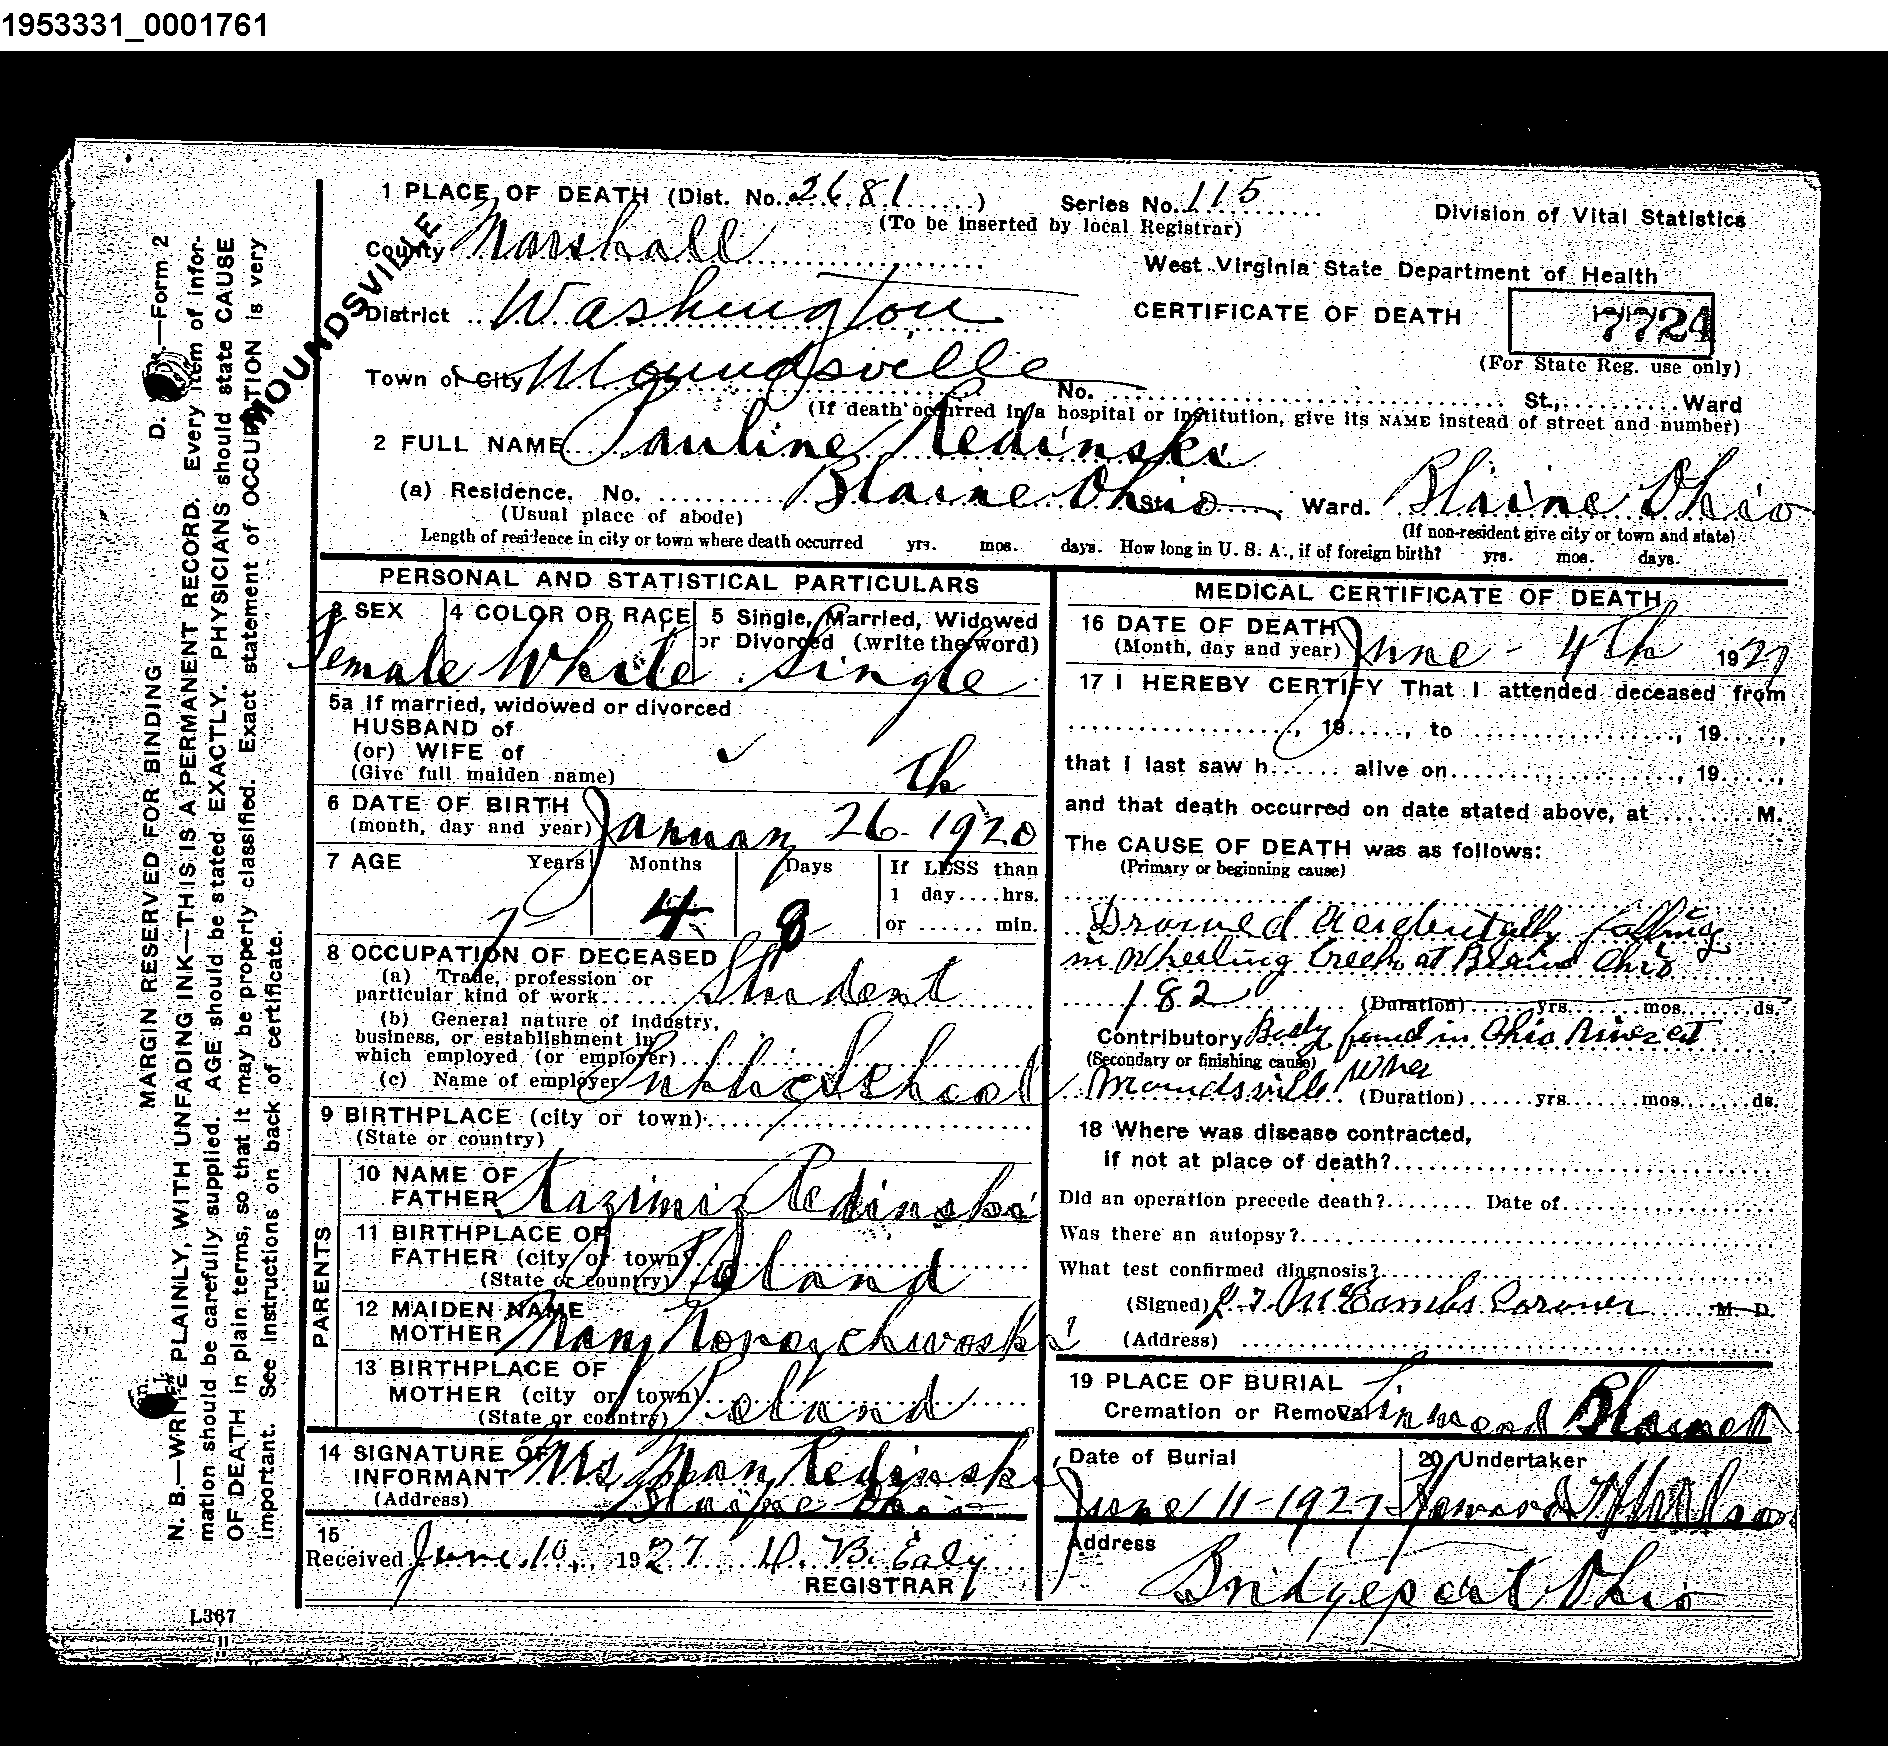 1953331_0001761
1 PLACE OF DEATH (Dist. No. 2681) Series No. 115
(To be inserted by local Registrar)
Division of Vital Statistics
County Marshall
West Virginia State Department of Health
MOUNDSVILLE
District Washington
CERTIFICATE OF DEATH 7724
(For State Reg. use only)
Town or City Moundsville No. St., Ward
(If death occurred in a hospital or institution, give its NAME instead of street and number)
2 FULL NAME Pauline Redinski
(a) Residence. No. Blaine Ohio St. Ward. Blaine Ohio
(Usual place of abode) (If non-resident give city or town and state)
Length of residence in city or town where death occurred yrs. mos. days. How long in U. S. A., if of foreign birth? yrs. mos. days.
PERSONAL AND STATISTICAL PARTICULARS
3 SEX 4 COLOR OR RACE 5 Single, Married, Widowed
or Divorced (write the word)
Female White Single
5a If married, widowed or divorced
HUSBAND of
(or) WIFE of
(Give full maiden name)
6 DATE OF BIRTH
(month, day and year) January 26th 1920
7 AGE Years Months Days If LESS than
1 day hrs.
or min.
7 4 8
8 OCCUPATION OF DECEASED
(a) Trade, profession or
particular kind of work Student
(b) General nature of industry,
business, or establishment in
which employed (or employer)
(c) Name of employer Public School
9 BIRTHPLACE (city or town)
(State or country)
PARENTS
10 NAME OF
FATHER Kazimiz Redinski
11 BIRTHPLACE OF
FATHER (city or town)
(State or country) Poland
12 MAIDEN NAME
MOTHER Mary
13 BIRTHPLACE OF
MOTHER (city or town)
(State or country) Poland
14 SIGNATURE OF
INFORMANT Mrs Mary Redinski
(Address) Blaine Ohio
15
Received June 10, 1927 D. B. Ealy
REGISTRAR
MEDICAL CERTIFICATE OF DEATH
16 DATE OF DEATH
(Month, day and year) June - 4th 1927
17 I HEREBY CERTIFY That I attended deceased from
, 19 , to , 19 ,
that I last saw h alive on , 19 ,
and that death occurred on date stated above, at M.
The CAUSE OF DEATH was as follows:
(Primary or beginning cause)
Drowned Accidentally falling
in Wheeling Creek at Blaine Ohio
182 (Duration) yrs. mos. ds.
Contributory Body found in Ohio River at
(Secondary or finishing cause)
Moundsville W Va (Duration) yrs. mos. ds.
18 Where was disease contracted,
if not at place of death?
Did an operation precede death? Date of
Was there an autopsy?
What test confirmed diagnosis?
(Signed) McCombs Coroner M. D.
(Address)
19 PLACE OF BURIAL
Cremation or Removal Linwood Blaine O
Date of Burial 20 Undertaker
June 11-1927 Howard
Address
Bridgeport Ohio
MARGIN RESERVED FOR BINDING D. —Form 2
N. B.—WRITE PLAINLY, WITH UNFADING INK—THIS IS A PERMANENT RECORD. Every item of infor-
mation should be carefully supplied. AGE should be stated EXACTLY. PHYSICIANS should state CAUSE
OF DEATH in plain terms, so that it may be properly classified. Exact statement of OCCUPATION is very
important. See instructions on back of certificate.
L367